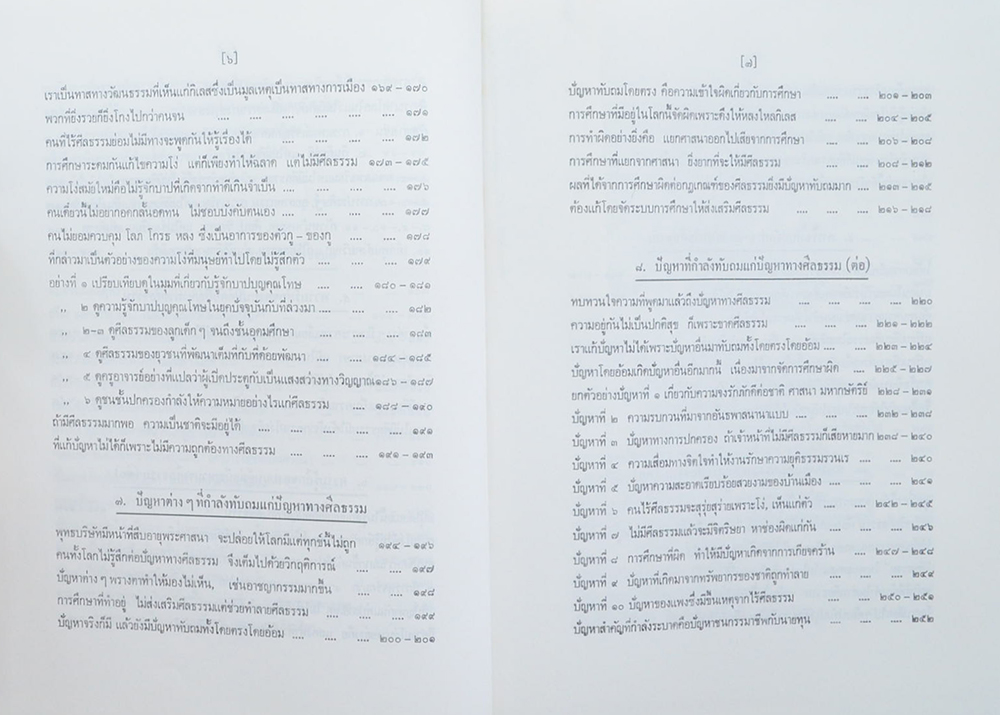 [๖]
เราเป็นทาสทางวัฒนธรรมที่เห็นแก่กิเลสซึ่งเป็นมูลเหตุเป็นทาสทางการเมือง ๑๖๙ – ๑๗๐
พวกที่ยิ่งรวยก็ยิ่งโกงไปกว่าคนจน .... .... .... .... .... ๑๗๑
คนที่ไร้ศีลธรรมย่อมไม่มีทางจะพูดกันให้รู้เรื่องได้ .... .... .... ๑๗๒
การศึกษาระดมกันแก้ไขความโง่ แต่ก็เพียงทำให้ฉลาด แต่ไม่มีศีลธรรม ๑๗๓ – ๑๗๕
ความโง่สมัยใหม่คือไม่รู้จักบาปที่เกิดจากทำดีเกินจำเป็น .... .... .... ๑๗๖
คนเดี๋ยวนี้ไม่อยากอดกลั้นอดทน ไม่ชอบบังคับตนเอง .... .... .... ๑๗๗
คนไม่ยอมควบคุม โลภ โกรธ หลง ซึ่งเป็นอาการของตัวกู – ของกู .... .... ๑๗๘
ที่กล่าวมาเป็นตัวอย่างของความโง่ที่มนุษย์ทำไปโดยไม่รู้สึกตัว .... .... ๑๗๙
อย่างที่ ๑ เปรียบเทียบดูในมุมที่เกี่ยวกับรู้จักบาปบุญคุณโทษ .... ๑๘๐ – ๑๘๑
,, ๒ ดูความรู้จักบาปบุญคุณโทษในยุคปัจจุบันกับที่ล่วงมา .... .... ๑๘๒
,, ๒–๓ ดูศีลธรรมของลูกเด็ก ๆ จนถึงชั้นอุดมศึกษา .... .... ๑๘๓
,, ๔ ดูศีลธรรมของยุวชนที่พัฒนาเต็มที่กับที่ด้อยพัฒนา .... ๑๘๔ – ๑๘๕
,, ๕ ดูครูอาจารย์อย่างที่แปลว่าผู้เปิดประตูกับเป็นแสงสว่างทางวิญญาณ ๑๘๖ – ๑๘๗
,, ๖ ดูชนชั้นปกครองกำลังให้ความหมายอย่างไรแก่ศีลธรรม .... ๑๘๘ – ๑๙๐
ถ้ามีศีลธรรมมากพอ ความเป็นชาติจะมีอยู่ได้ .... .... .... .... ๑๙๑
ที่แก้ปัญหาไม่ได้ก็เพราะไม่มีความถูกต้องทางศีลธรรม .... .... .... ๑๙๑ – ๑๙๓
๗. ปัญหาต่าง ๆ ที่กำลังทับถมแก่ปัญหาทางศีลธรรม
พุทธบริษัทมีหน้าที่สืบอายุพระศาสนา จะปล่อยให้โลกมีแต่ทุกข์นี้ไม่ถูก ๑๙๔ – ๑๙๖
คนทั้งโลกไม่รู้สึกต่อปัญหาทางศีลธรรม จึงเต็มไปด้วยวิกฤติการณ์ .... .... ๑๙๗
ปัญหาต่าง ๆ พรางตาทำให้มองไม่เห็น, เช่นอาชญากรรมมากขึ้น .... .... ๑๙๘
การศึกษาที่ทำอยู่ ไม่ส่งเสริมศีลธรรมแต่ช่วยทำลายศีลธรรม .... .... ๑๙๙
ปัญหาจริงก็มี แล้วยังมีปัญหาทับถมทั้งโดยตรงโดยอ้อม .... .... .... ๒๐๐ – ๒๐๑
[๗]
ปัญหาทับถมโดยตรง คือความเข้าใจผิดเกี่ยวกับการศึกษา .... .... ๒๐๑ – ๒๐๓
การศึกษาที่มีอยู่ในโลกนี้จัดผิดเพราะดึงให้หลงใหลกิเลส .... ๒๐๔ – ๒๐๕
การทำผิดอย่างยิ่งคือ แยกศาสนาออกไปเสียจากการศึกษา .... .... ๒๐๖ – ๒๐๘
การศึกษาที่แยกจากศาสนา ยิ่งยากที่จะให้มีศีลธรรม .... .... ๒๐๘ – ๒๑๒
ผลที่ได้จากการศึกษาผิดต่อกฎเกณฑ์ของศีลธรรมยิ่งมีปัญหาทับถมมาก .... ๒๑๓ – ๒๑๕
ต้องแก้โดยจัดระบบการศึกษาให้ส่งเสริมศีลธรรม .... .... .... ๒๑๖ – ๒๑๘
๘. ปัญหาที่กำลังทับถมแก่ปัญหาทางศีลธรรม (ต่อ)
ทบทวนใจความที่พูดมาแล้วถึงปัญหาทางศีลธรรม .... .... .... .... ๒๒๐
ความอยู่กันไม่เป็นปกติสุข ก็เพราะขาดศีลธรรม .... .... .... ๒๒๑ – ๒๒๒
เราแก้ปัญหาไม่ได้เพราะปัญหาอื่นมาทับถมทั้งโดยตรงโดยอ้อม .... .... ๒๒๓ – ๒๒๔
ปัญหาโดยอ้อมเกิดปัญหาอื่นอีกมากนี้ เนื่องมาจากจัดการศึกษาผิด .... ๒๒๕ – ๒๒๗
ยกตัวอย่างปัญหาที่ ๑ เกี่ยวกับความจงรักภักดีต่อชาติ ศาสนา มหากษัตริย์ ๒๒๘ – ๒๓๑
ปัญหาที่ ๒ ความรบกวนที่มาจากอันธพาลนานาแบบ .... .... ๒๓๒ – ๒๓๘
ปัญหาที่ ๓ ปัญหาทางการปกครอง ถ้าเจ้าหน้าที่ไม่มีศีลธรรมก็เสียหายมาก ๒๓๘ – ๒๔๐
ปัญหาที่ ๔ ความเสื่อมทางจิตใจทำให้งานรักษาความยุติธรรมรวนเร .... ๒๔๐
ปัญหาที่ ๕ ปัญหาความสะอาดเรียบร้อยสวยงามของบ้านเมือง .... .... ๒๔๑
ปัญหาที่ ๖ คนไร้ศีลธรรมจะสุรุ่ยสุร่ายเพราะโง่, เห็นแก่ตัว .... ๒๔๒ – ๒๔๕
ปัญหาที่ ๗ ไม่มีศีลธรรมแล้วจะมีจิตริษยา หาช่องผิดแก่กัน .... .... ๒๔๖
ปัญหาที่ ๘ การศึกษาที่ผิด ทำให้มีปัญหาเกิดจากการเกียจคร้าน .... ๒๔๗ – ๒๔๘
ปัญหาที่ ๙ ปัญหาที่เกิดมาจากทรัพยากรของชาติถูกทำลาย .... .... .... ๒๔๙
ปัญหาที่ ๑๐ ปัญหาของแพงซึ่งมีขึ้นเหตุจากไร้ศีลธรรม .... .... ๒๕๐ – ๒๕๑
ปัญหาสำคัญที่กำลังระบาดคือปัญหาชนกรรมาชีพกับนายทุน .... .... .... ๒๕๒